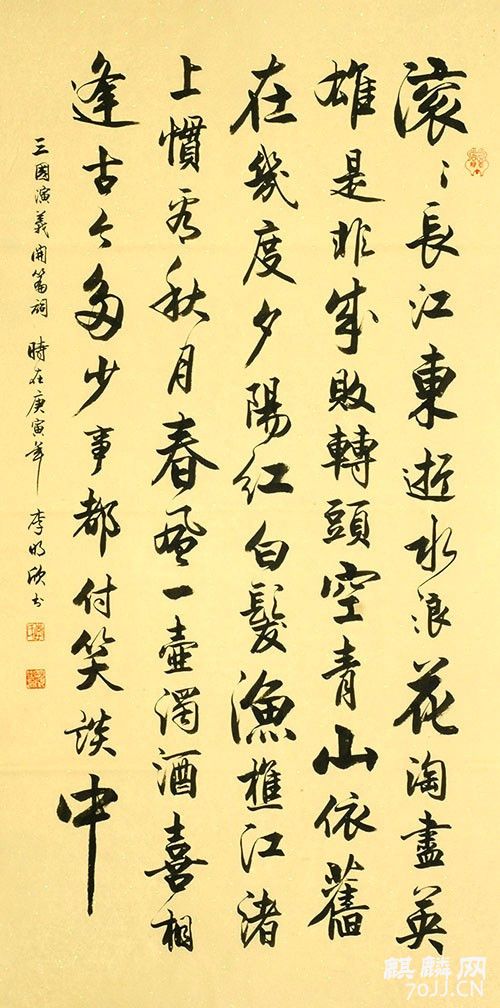 滚〻長江東逝水浪花淘盡英
雄是非成敗轉頭空青山依舊
在幾度夕陽紅白髮漁樵江渚
上慣看秋月春風一壺濁酒喜相
逢古今多少事都付笑談中
三國演義開篇詞 時在庚寅年 李明欣书
麒麟网
70JJ.CN